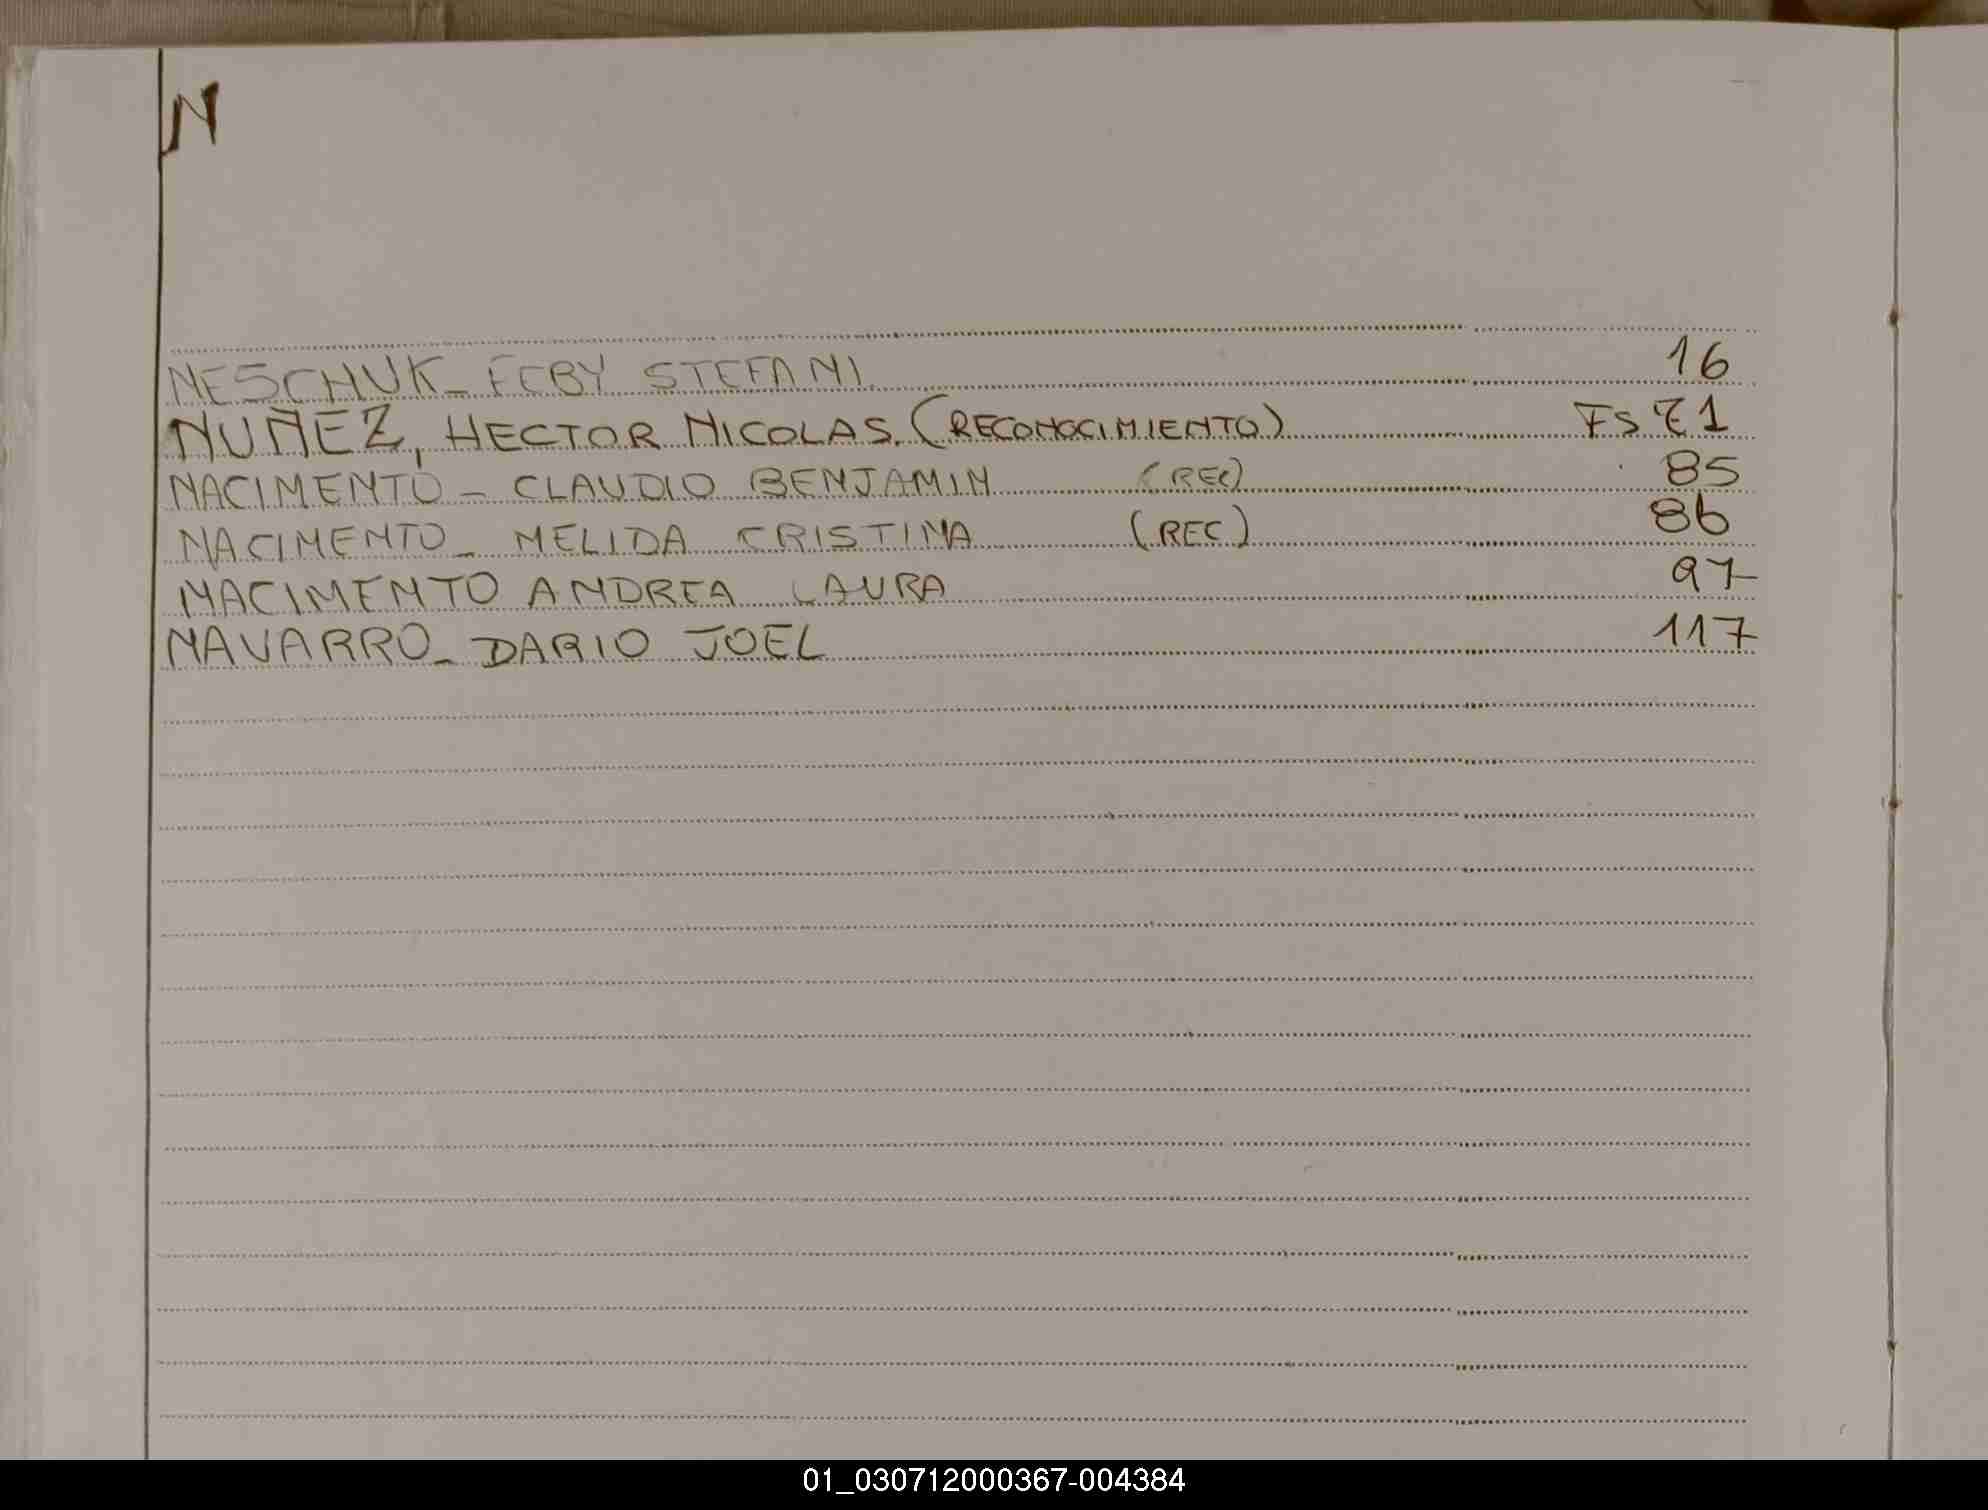 N
NESCHUK_ ECBY STEFANI. 16
NUÑEZ, HECTOR NICOLAS. (RECONOCIMIENTO) FS 71
NACIMENTO - CLAUDIO BENJAMIN (REC) 85
NACIMENTO_ NELIDA CRISTINA (REC) 86
NACIMENTO ANDREA LAURA 97
NAVARRO_ DARIO JOEL 117
01_030712000367-004384